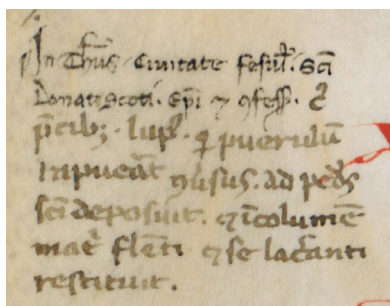 In Thus Ciuitate Fesul̃. Sc̃i
Donati Scoti. Ep̃i ⁊ ꝯfess̃. c̃
p̃cib; . lup̃. q̃ puerulũ
ꝯuersus. ad ped̃s
sc̃i deposuit. ⁊ ĩcolumẽ
mat̃ flẽti ⁊ se lac̃anti
restituit.